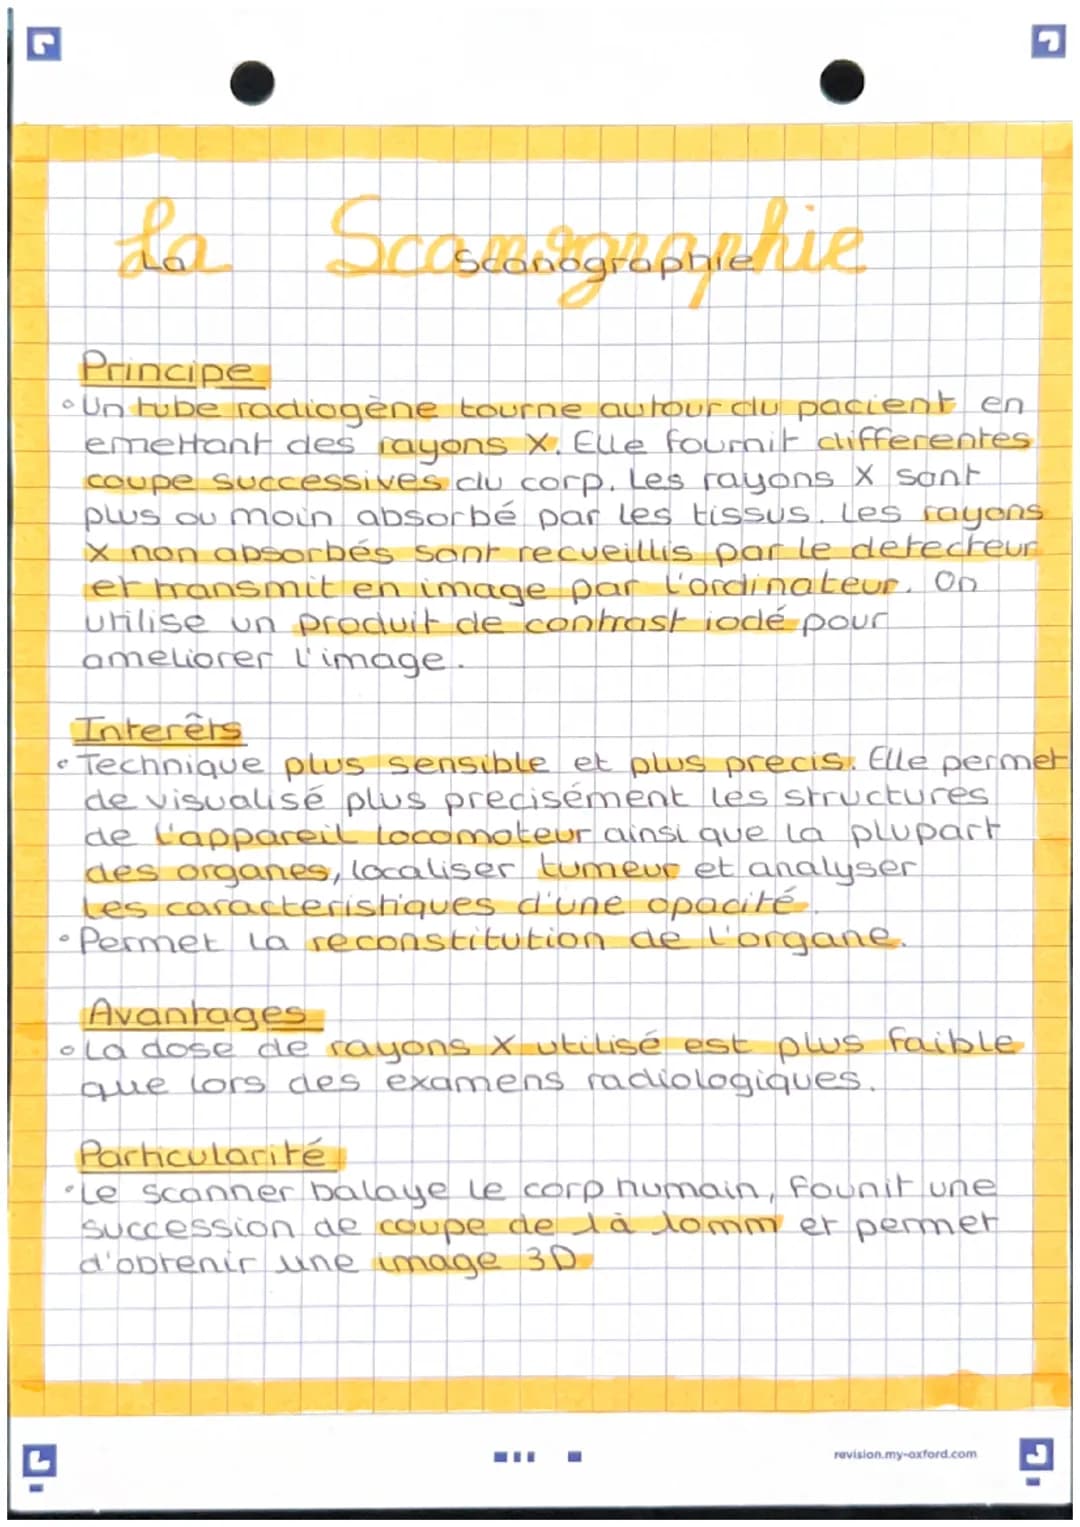 La Scanographie
La Scanographie
Principe
• Un tube radiogène tourne autour du pacient en
emettant des rayons X. Elle fournit differentes
coupe successives du corp. Les rayons X sont
plus ou moin absorbé par les tissus. Les rayons
X non absorbés sont recueillis par le detecteur
et transmit en image par l'ordinateur. On
utilise un produit de contrast iodé pour
ameliorer l'image.
Interêts
• Technique plus sensible et plus precis. Elle permet
de visualisé plus precisément les structures
de l'appareil locomoteur ainsi que la plupart
des organes, localiser tumeur et analyser
les caracteristiques d'une opacité.
• Permet la reconstitution de l'organe.
Avantages
• La dose de rayons X utilisé est plus faible
que lors des examens radiologiques.
Particularité
• Le scanner balaye le corp humain, founit une
succession de coupe de 1 à 10mm et permet
d'obtenir une image 3D
revision.my-oxford.com